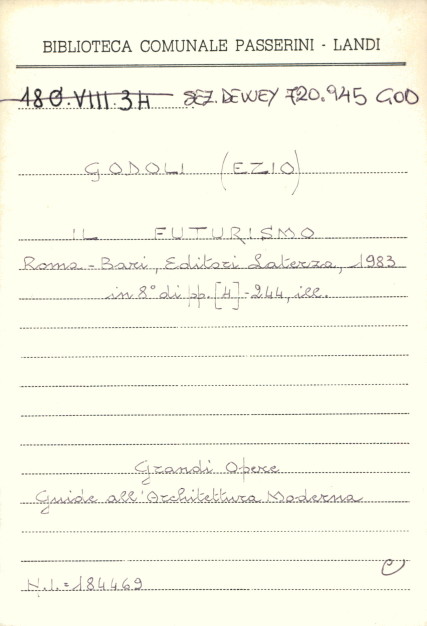 BIBLIOTECA COMUNALE PASSERINI - LANDI
180.VIII.34 SEZ. DEWEY 720.945 GOD
GODOLI (EZIO)
IL FUTURISMO
Roma - Bari, Editori Laterza, 1983
in 8° di pp. [4]-244, ill.
Grandi Opere
Guide all'Architettura Moderna
N.I. = 184469